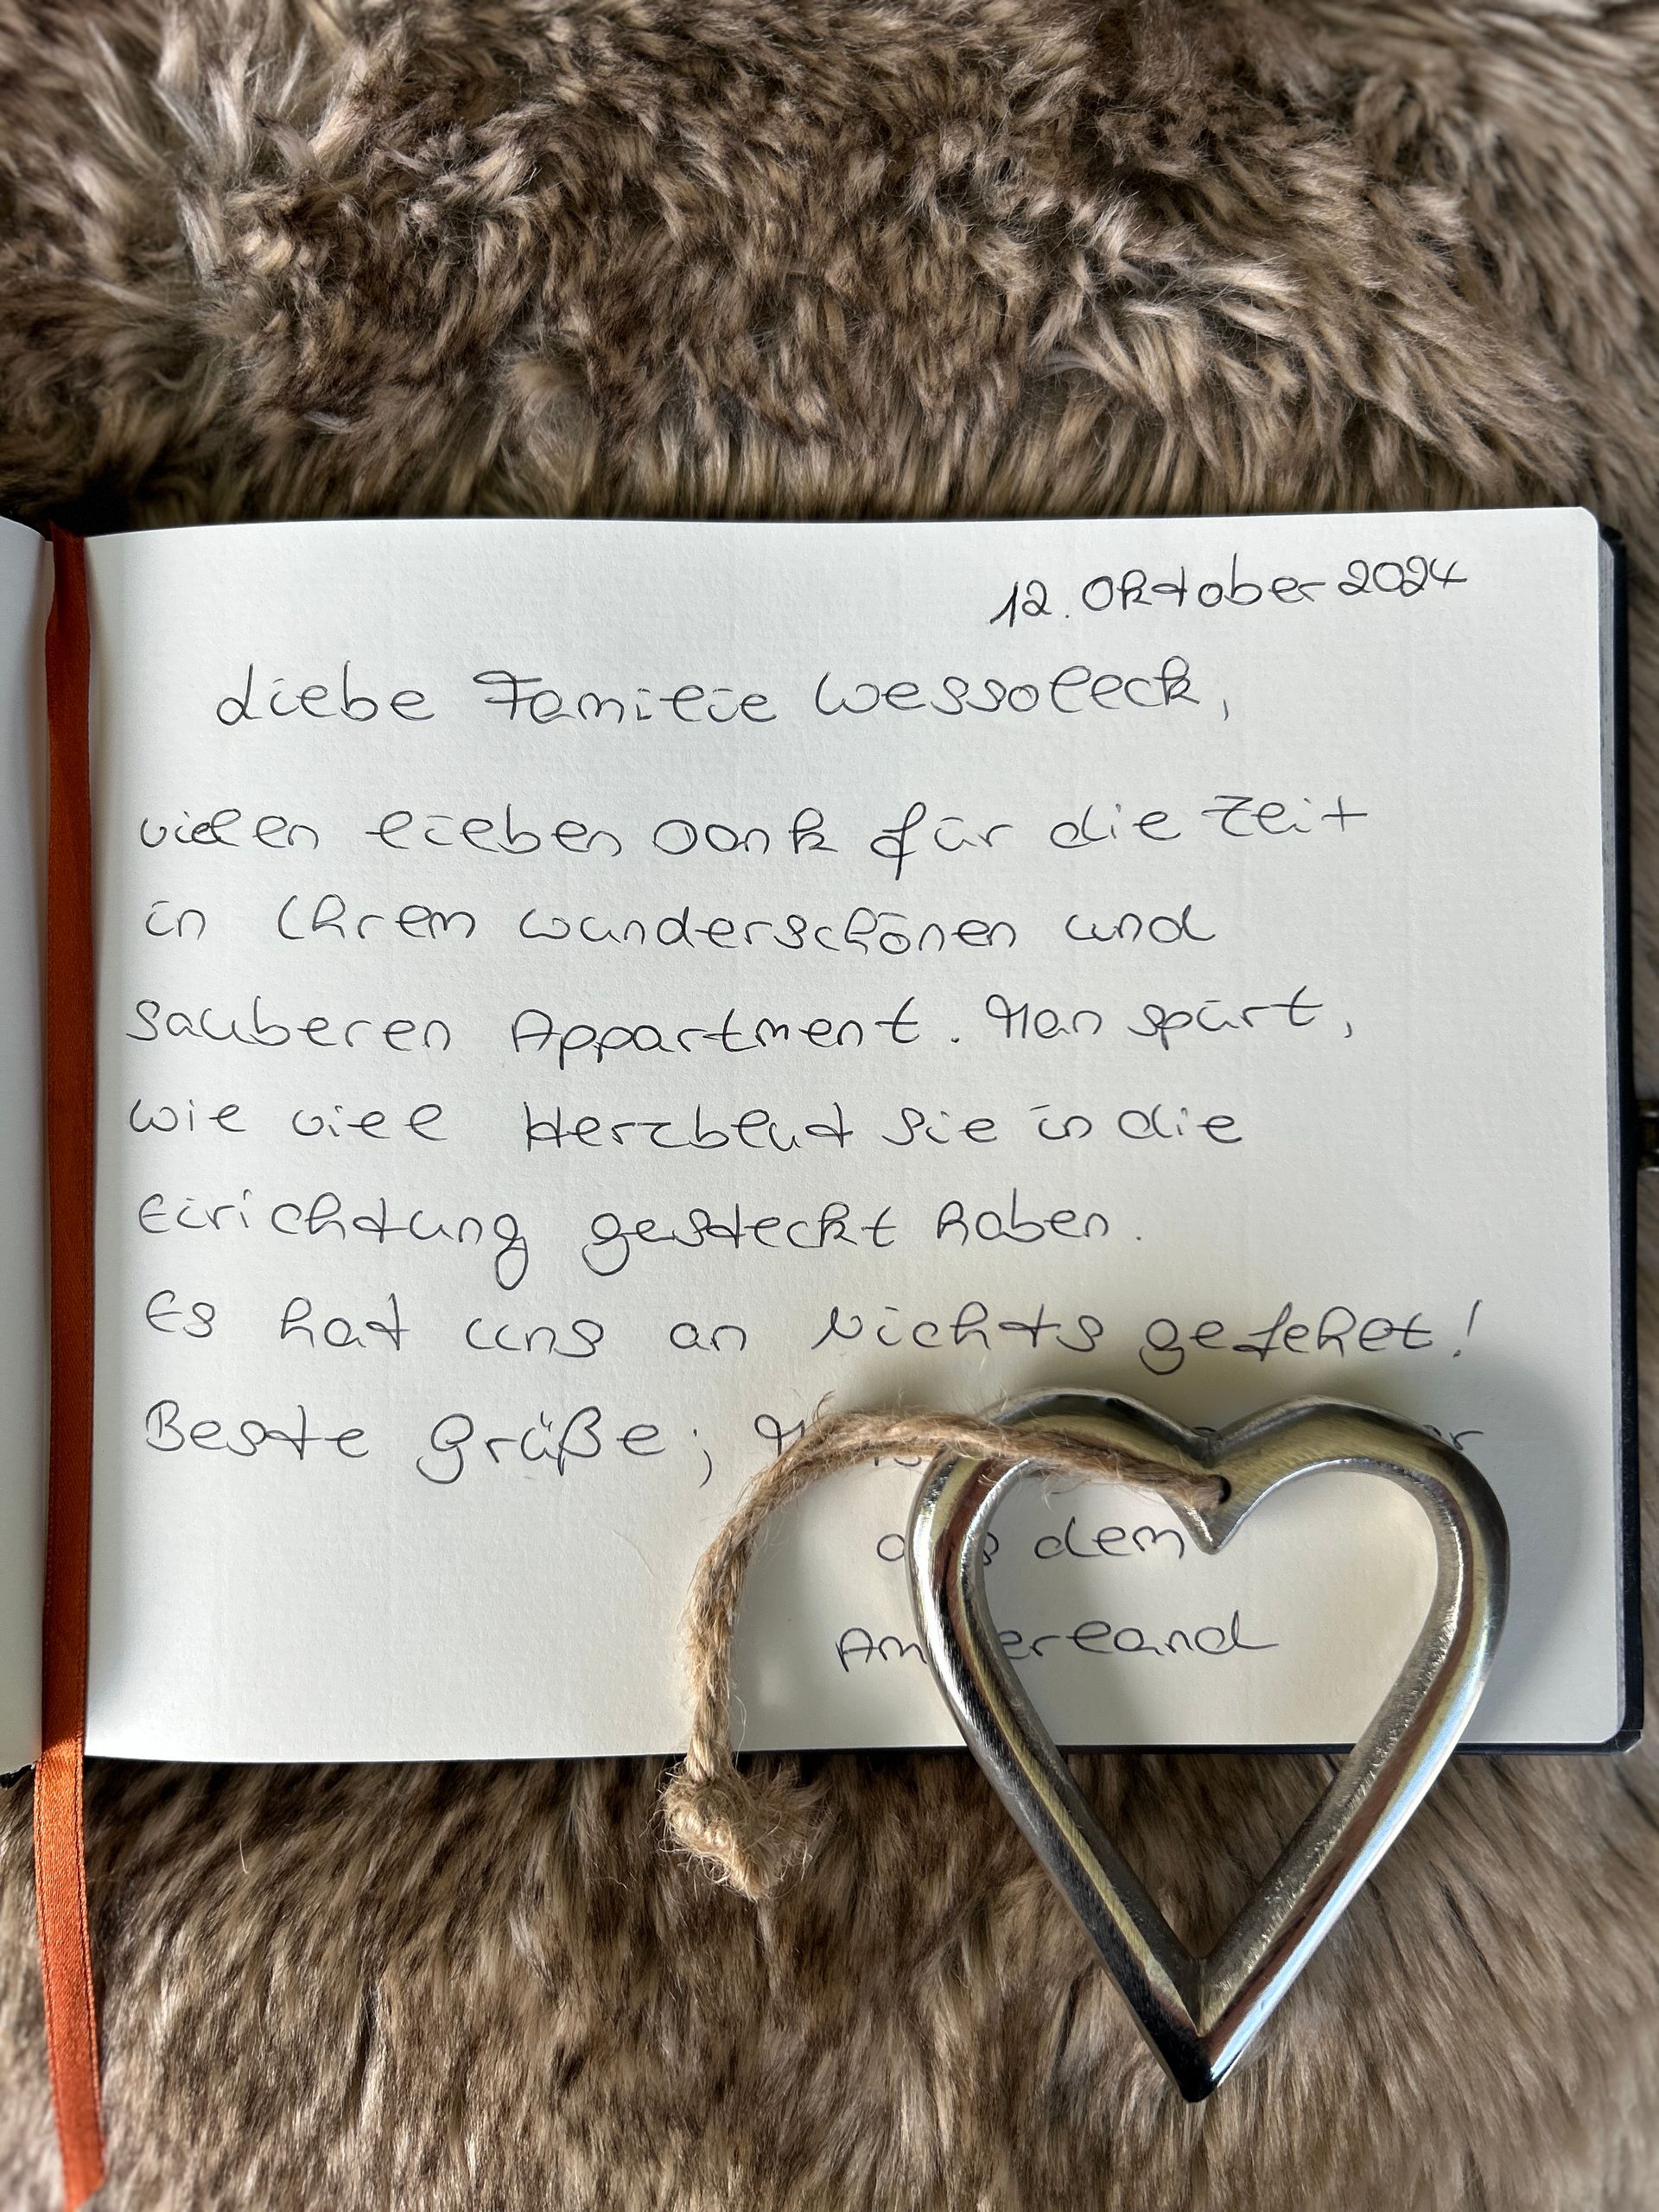 12. Oktober 2024
Liebe Familie Wessoleck,
vielen lieben Dank für die Zeit
in Ihrem wunderschönen und
sauberen Appartment. Man spürt,
wie viel Herzblut Sie in die
Eirichtung gesteckt haben.
Es hat uns an Nichts gefehlt!
Beste Grüße;
aus dem
Ammerland